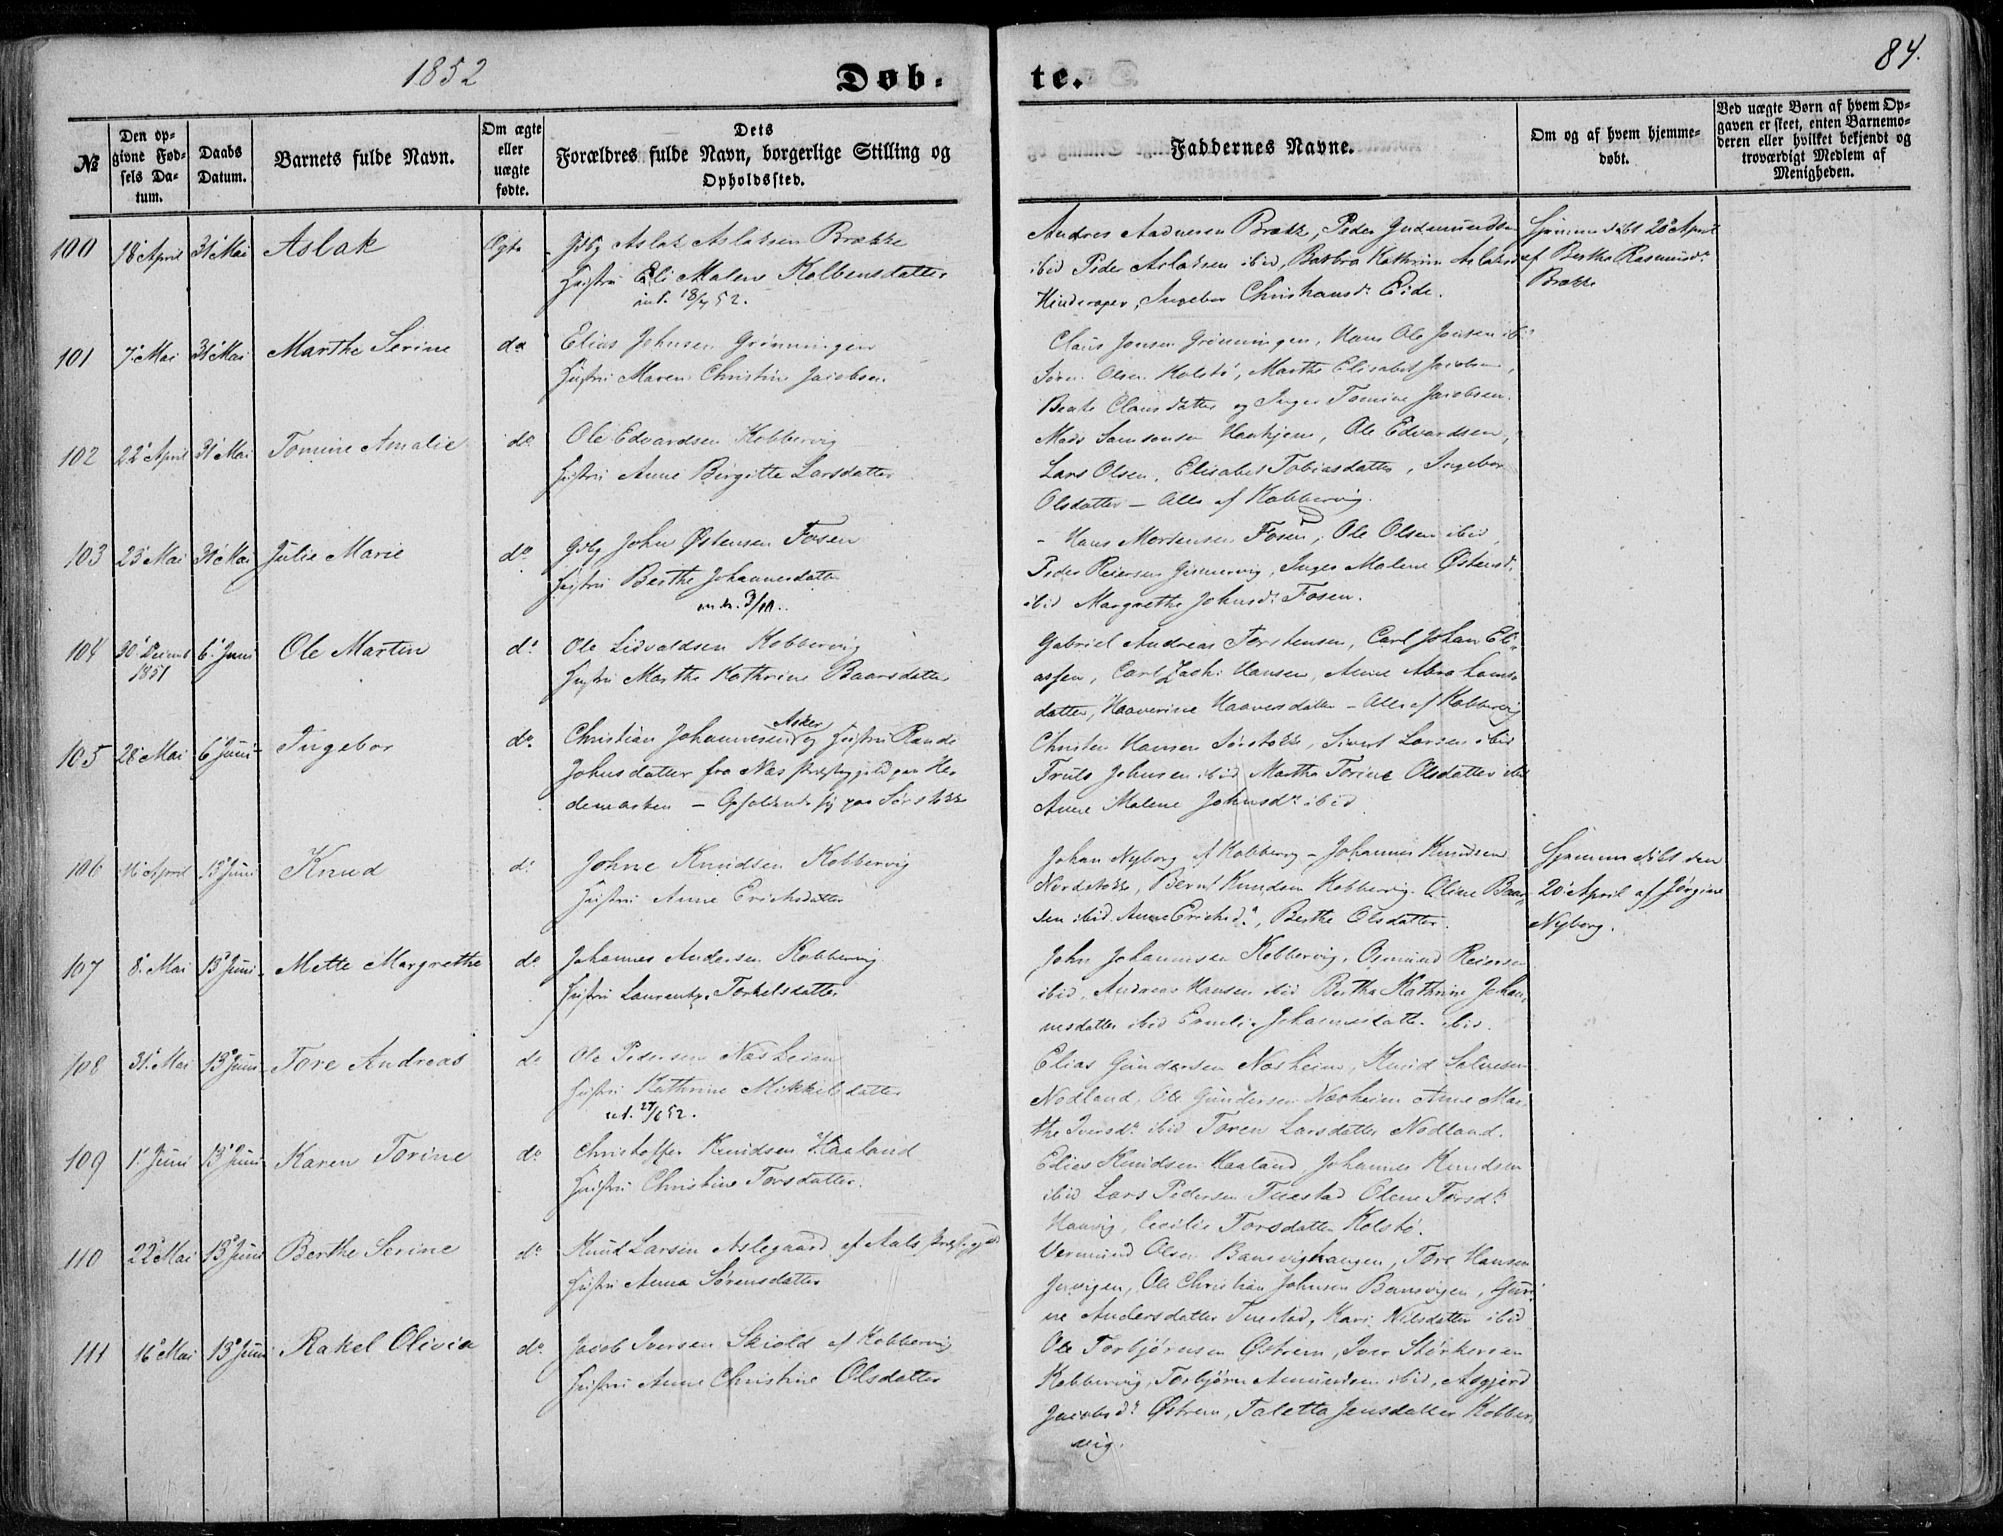 1852
Døb-
te.
84.
№
Den op-
givne Fød-
sels Da-
tum.
Daabs
Datum.
Barnets fulde Navn.
Om ægte
eller
uægte
fødte.
Dets
Forældres fulde Navn, borgerlige Stilling og
Opholdssted.
Faddernes Navne.
Om og af hvem hjemme-
døbt.
Ved uægte Børn af hvem Op-
gaven er skeet, enten Barnemo-
deren eller hvilket bekjendt og
troværdigt Medlem af
Menigheden.
100 18 April 31 Mai Aslak Ægte Gdbg Aslak Aslaksen Brække
Hustru Eli Malene Kolbensdatter
int. 18/4 52.
Andres Aadnesen Brække, Peder Gudmundsen
ibid Peder Aslaksen ibid, Barbra Kathrine Aslaksd
Hinderager, Ingebor Christiansdr Eide.
Hjemmedøbt 20 April
af Berthe Rasmusdr
Brække
101 7 Mai 31 Mai Marthe Serine do Elias Johnsen Grønningen
Hustru Maren Christine Jacobsen
Claus Jonsen Grønningen, Hans Ole Jonsen ib.
Søren Olsen Kolstø, Marthe Elisabet Jacobsen,
Beate Clausdatter og Inger Tomine Jacobsen.
102 22 April 31 Mai Tomine Amalie do Ole Edvardsen Kobbervig
Hustru Anne Birgitte Larsdatter
Mads Samsonsen, Ole Edvardsen,
Lars Olsen, Elisabet Tobiasdatter, Ingebor
Olsdatter – Alle af Kobbervig.
103 23 Mai 31 Mai Julie Marie do Gdbg John Østensen Fosen
Hustru Berthe Johannesdatter
– Hans Mortensen Fosen, Ole Olsen ibid,
Peder Reiersen Gismervig, Inger Malene Østensdr
ibid Margrethe Johnsdr Fosen.
104 30 Decemb 6 Juni Ole Martin do Ole Lidvaldsen Kobbervig
1851 Hustru Marthe Kathrine Baarsdatter
Gabriel Andreas Torstensen, Carl Johan Eli-
assen, Carl Zach: Hansen, Anne Abrahams-
datter, Haaverine Haaversdatter – Alle af Kobbervig
105 28 Mai 6 Juni Ingebor do Christian Johannesen Asker og Hustru Rande
Johnsdatter fra Næs Præstegjeld paa He-
demarken – Opholdende sig paa Sørstokke
Christen Hansen Sørstokke, Sivert Larsen ibid
Truls Johnsen ibid Marthe Torine Olsdatter ibid
Anne Malene Johnsdr ibid
106 16 April 13 Juni Knud do Johne Knudsen Kobbervig
Hustru Anne Erichsdatter
Johan Nyborg af Kobbervig – Johannes Knudsen
Nordstokke, Bernt Knudsen Kobbervig. Oline
ibid. Anne Erichsdr, Berthe Olsdatter.
Hjemmedøbt den
20 April af Jørgine
Nyborg.
107 8 Mai 13 Juni Mette Margrethe do Johannes Andersen Kobbervig
Hustru Laurentze Torkelsdatter
John Johannesen Kobbervig, Osmund Reiersen
ibid, Andreas Hansen ibid Bertha Kathrine Johan-
nesdatter ibid Emelie Johannesdatter ibid.
108 31 Mai 13 Juni Tore Andreas do Ole Pedersen Næsheim
Hustru Kathrine Mikkelsdatter
int. 27/6 52.
Elias Gundersen Næsheim, Knud Salvesen
Nodland, Ole Gundersen Næsheim Anne Mar-
the Iversdr ibid Toren Larsdatter Nodland.
109 1 Juni 13 Juni Karen Torine do Christoffer Knudsen Haaland
Hustru Christine Torsdatter.
Elias Knudsen Haaland, Johannes Knudsen
ibid Lars Pedersen Tuestad Olene Torsdr
Haavig, Cecilie Torsdatter Kolstø.
110 22 Mai 13 Juni Berthe Serine do Knud Larsen Aslegaard af Aals Præstegjeld
Hustru Anna Sørensdatter
Vermund Olsen Bansvighaugen, Tore Hansen
Ole Christian Johnsen Bansvigen, Guri-
ne Andersdatter Tuestad, Kari Nilsdatter ibid
111 16 Mai 13 Juni Rakel Olivia do Jacob Iversen Skiold af Kobbervig
Hustru Anne Christine Olsdatter
Ole Torbjørnsen Østrem, Iver Størkersen
Kobbervig, Torbjørn Amundsen ibid, Asgjerd
Jacobsdr Østrem, Taletta Jensdatter Kobber-
vig.